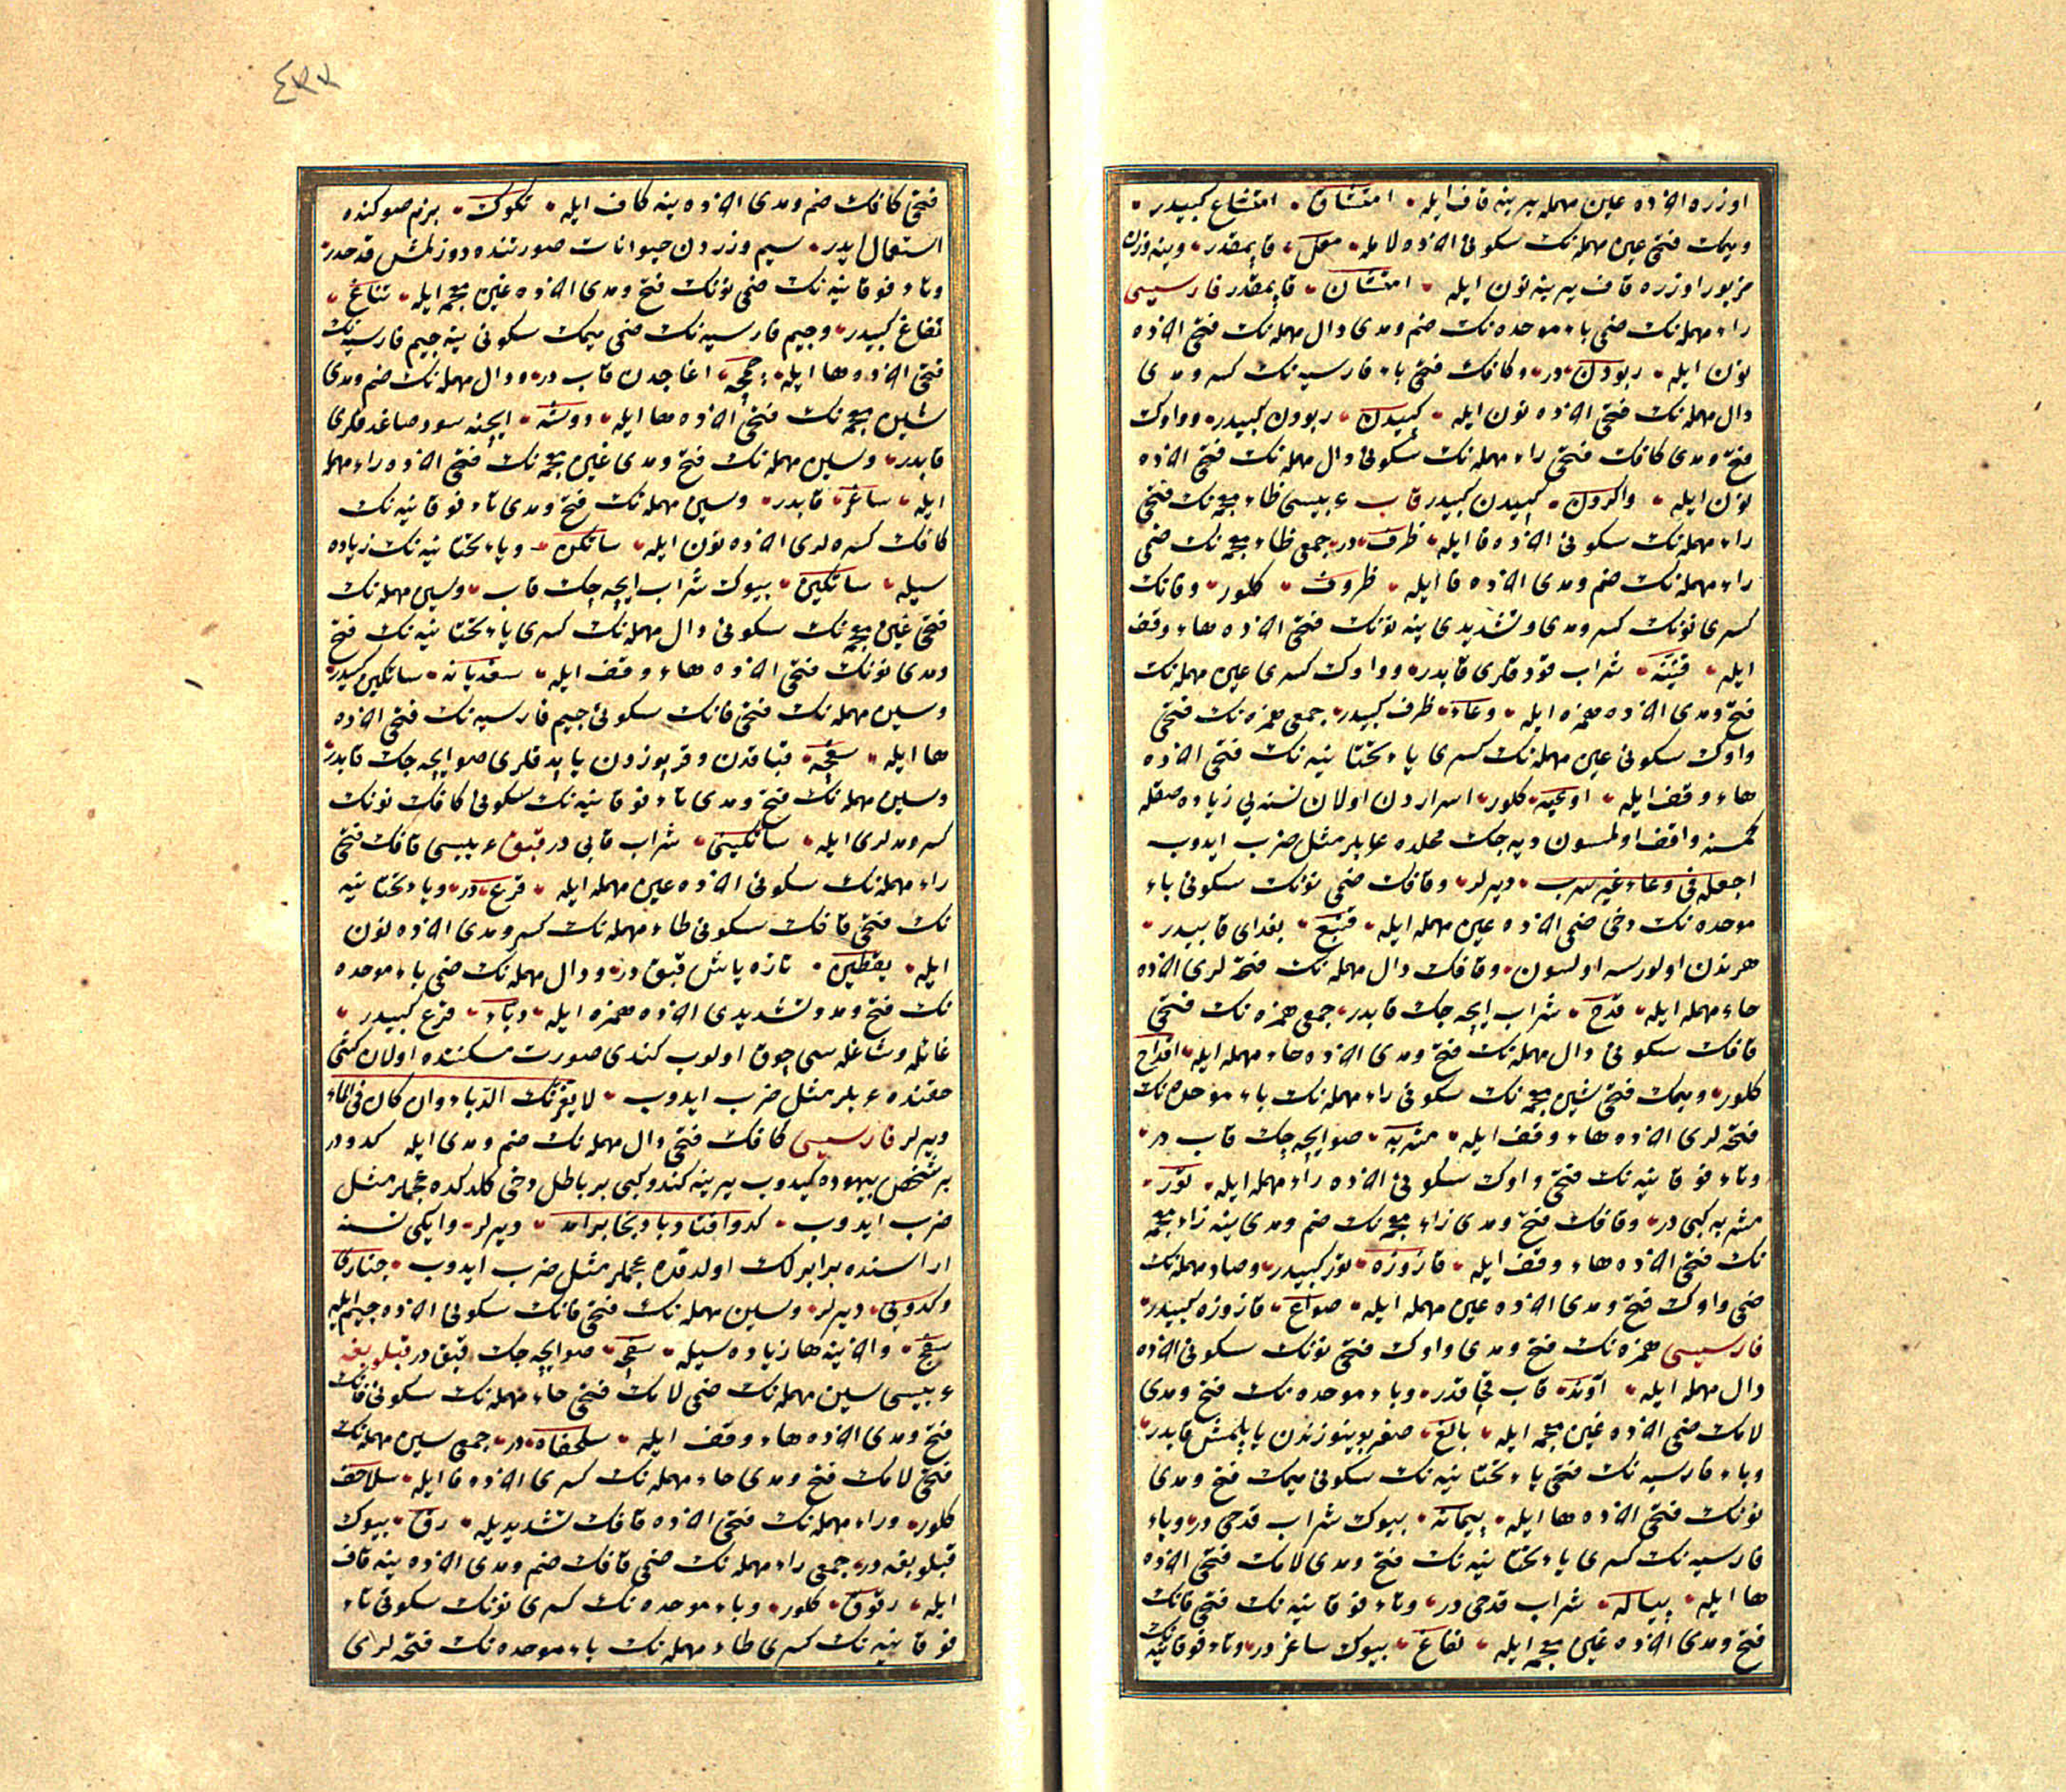 اوزره اخرده عين مهمله يرينه قاف ايله امتشاق امتشاع كبيدر
وميمك فتحى عين مهمله نك سكونى اخرده لامله معل قاپمقدر وينه وزن
مزبور اوزره قاف يرينه نون ايله امتشان قاپمقدر فارسيسى
راء مهمله نك ضمى باء موحده نك ضم ومدى دال مهمله نك فتحى اخرده
نون ايله ربودن در وكافك فتحى باء فارسيه نك كسر ومدى
دال مهمله نك فتحى اخرده نون ايله كپيدن ربودن كبيدر وواوك
فتح ومدى كافك فتحى راء مهمله نك سكونى دال مهمله نك فتحى اخرده
نون ايله واكردن كپيدن كبيدر قاب عربيسى ظاء معجمه نك فتحى
راء مهمله نك سكونى اخرده فا ايله ظرف در جمعى ظاء معجمه نك ضمى
راء مهمله نك ضم ومدى اخرده فا ايله ظروف كلور وقافك
كسرى نونك كسر ومدى وتشديدى ينه نونك فتحى اخرده هاء وقف
ايله قنينه شراب قودقلرى قابدر وواوك كسرى عين مهمله نك
فتح ومدى اخرده همزه ايله وعاء ظرف كبيدر جمعى همزه نك فتحى
واوك سكونى عين مهمله نك كسرى ياء تحتانيه نك فتحى اخرده
هاء وقف ايله اوعيه كلور اسراردن اولان نسنه يى زياده صقله
كمسنه واقف اولمسون ديه جك محلده عربلر مثل ضرب ايدوب
اجعله فى وعاء غير سرب ديرلر وقافك ضمى نونك سكونى باء
موحده نك دخى ضمى اخرده عين مهمله ايله قنبع بغداى قابيدر
هر نه‌دن اولورسه اولسون وقافك دال مهمله نك فتحه لرى اخرده
حاء مهمله ايله قدح شراب ايچه جك قابدر جمعى همزه نك فتحى
قافك سكونى دال مهمله نك فتح ومدى اخرده حاء مهمله ايله اقداح
كلور وميمك فتحى شين معجمه نك سكونى راء مهمله نك باء موحده نك
فتحه لرى اخرده هاء وقف ايله مشربه صو ايچه جك قاب در
وتاء فوقانيه نك فتحى واوك سكونى اخرده راء مهمله ايله تور
مشربه كبى در وقافك فتح ومدى زاء معجمه نك ضم ومدى ينه زاء معجمه
نك فتحى اخرده هاء وقف ايله قازوزه تور كبيدر وصاد مهمله نك
ضمى واوك فتح ومدى اخرده عين مهمله ايله صواع قازوزه كبيدر
فارسيسى همزه نك فتح ومدى واوك فتحى نونك سكونى اخرده
دال مهمله ايله آوند قاب قچاقدر وباء موحده نك فتح ومدى
لامك ضمى اخرده غين معجمه ايله بالغ صغر بوينوزندن ياپلمش قابدر
وباء فارسيه نك فتحى ياء تحتانيه نك سكونى ميمك فتح ومدى
نونك فتحى اخرده ها ايله پيمانه بيوك شراب قدحى در وباء
فارسيه نك كسرى ياء تحتانيه نك فتح ومدى لامك فتحى اخرده
ها ايله پياله شراب قدحى در وتاء فوقانيه نك فتحى فانك
فتح ومدى اخرده غين معجمه ايله تفاغ بيوك ساغر در وتاء فوقانيه نك
٤٣٣
فتحى كافك ضم ومدى اخرده ينه كاف ايله تكوك بزم صوكنده
استعمال ايدر سيم وزردن حيوانات صورتنده دوزلمش قدحدر
وتاء فوقانيه نك ضمى نونك فتح ومدى اخرده غين معجمه ايله تناغ
تفاغ كبيدر وجيم فارسيه نك ضمى ميمك سكونى ينه جيم فارسيه نك
فتحى اخرده ها ايله چمچه اغاجدن قاب در ودال مهمله نك ضم ومدى
شين معجمه نك فتحى اخرده ها ايله دوشه ايچنه سود صاغدقلرى
قابدر وسين مهمله نك فتح ومدى غين معجمه نك فتحى اخرده راء مهمله
ايله ساغر قابدر وسين مهمله نك فتح ومدى تاء فوقانيه نك
كافك كسره لرى اخرده نون ايله ساتكن وياء تحتانيه نك زياده
سيله ساتكين بيوك شراب ايچه جك قاب وسين مهمله نك
فتحى غين معجمه نك سكونى دال مهمله نك كسرى ياء تحتانيه نك فتح
ومدى نونك فتحى اخرده هاء وقف ايله سغديانه ساتكين كبيدر
وسين مهمله نك فتحى فانك سكونى جيم فارسيه نك فتحى اخرده
ها ايله سفچه قباقدن وقربوزدن ياپدقلرى صو ايچه جك قابدر
وسين مهمله نك فتح ومدى تاء فوقانيه نك سكونى كافك نونك
كسر ومدلرى ايله ساتكينى شراب قابى در قبق عربيسى قافك فتحى
راء مهمله نك سكونى اخرده عين مهمله ايله قرع در وياء تحتانيه
نك فتحى قافك سكونى طاء مهمله نك كسر ومدى اخرده نون
ايله يقطين تازه ياش قبق در ودال مهمله نك ضمى باء موحده
نك فتح ومد وتشديدى اخرده همزه ايله دباء قرع كبيدر
غائله وشاغله سى چوق اولوب كندى صورت مسكنده اولان كمى
حقنده عربلر مثل ضرب ايدوب لا يغرنك الدباء وان كان فى الماء
ديرلر فارسيسى كافك فتحى دال مهمله نك ضم ومدى ايله كدو در
بر شخص بيهوده كيدوب يرينه كندو كبى بر باطل دخى كلدكده عجملر مثل
ضرب ايدوب كدو افتاد وبادنجان برآمد ديرلر وايكى نسنه
اراسنده برابرلك اولدقده عجملر مثل ضرب ايدوب
وكدويى ديرلر وسين مهمله نك فتحى فانك سكونى اخرده جيم ايله
سفج واخرينه ها زياده سيله سفجه صو ايچه جك قبق در قپلوبغه
عربيسى سين مهمله نك ضمى لامك فتحى حاء مهمله نك سكونى فانك
فتح ومدى اخرده هاء وقف ايله سلحفاه در جمعى سين مهمله نك
فتحى لامك فتح ومدى حاء مهمله نك كسرى اخرده فا ايله سلاحف
كلور وراء مهمله نك فتحى اخرده قافك تشديديله رق بيوك
قپلوبغه در جمعى راء مهمله نك ضمى قافك ضم ومدى اخرده ينه قاف
ايله رقوق كلور وباء موحده نك كسرى نونك سكونى تاء
فوقانيه نك كسرى طاء مهمله نك باء موحده نك فتحه لرى